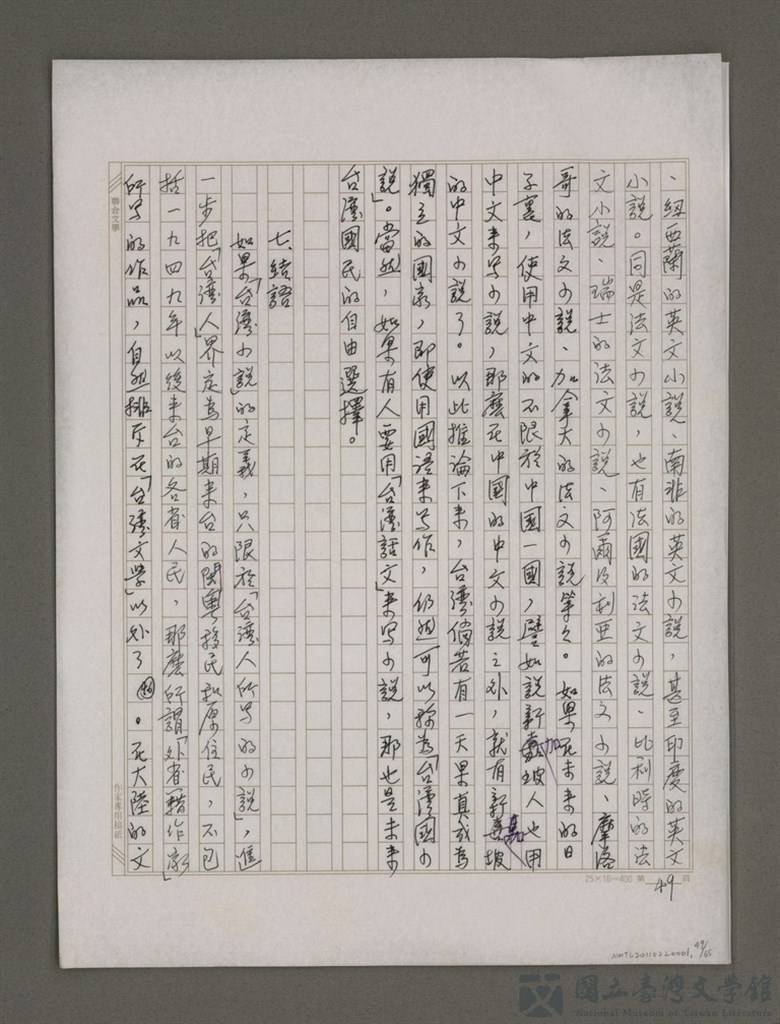 、紐西蘭的英文小說、南非的英文小說，甚至印度的英文
小說。同是法文小說，也有法國的法文小說、比利時的法
文小說、瑞士的法文小說、阿爾及利亞的法文小說、摩洛
哥的法文小說、加拿大的法文小說等等。如果在未來的日
子裏，使用中文的不限於中國一國，譬如說新加坡人也用
中文來寫小說，那麼在中國的中文小說之外，就有新嘉坡
的中文小說了。以此推論下來，台灣倘若有一天果真成為
獨立的國家，即使用國語來寫作，仍然可以稱為「台灣國小
說」。當然，如果有人要用「台灣話文」來寫小說，那也是未來
台灣國民的自由選擇。
七、結語
如果「台灣小說」的定義，只限於「台灣人所寫的小說」，進
一步把「台灣人」界定為早期來台的閩粵移民和原住民，不包
括一九四九年以後來台的各省人民，那麼所謂「外省籍作家」
所寫的作品，自然排斥在「台灣文學」以外了㊽。在大陸的文
聯合文學
作家專用稿紙
25×16=400 第 49 頁
NMTL20110220001, 49/65
國立臺灣文學館
National Museum of Taiwan Literature